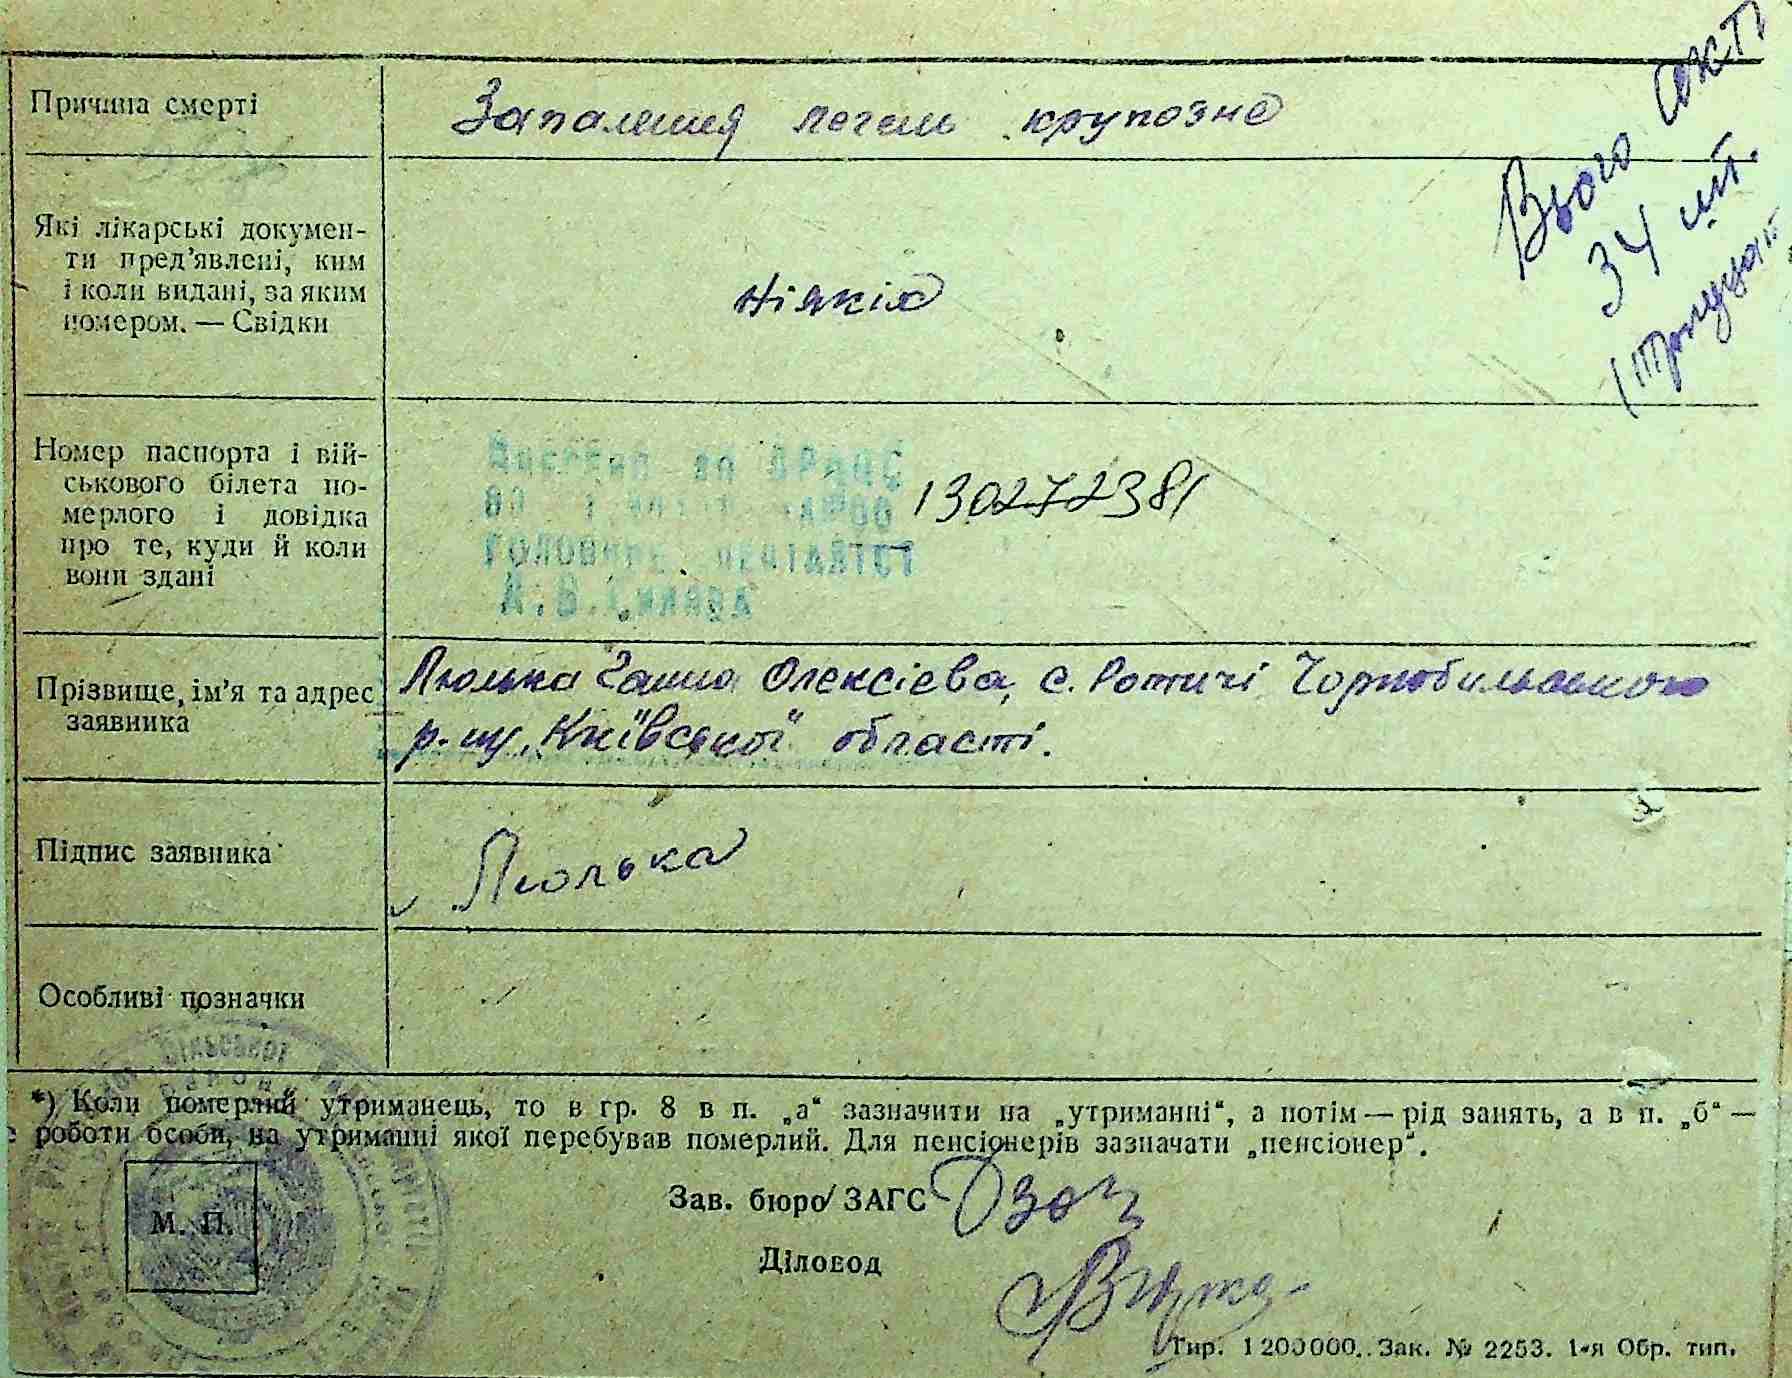 Причина смерті
Запалення легень крупозне
Які лікарські докумен-
ти пред’явлені, ким
і коли видані, за яким
номером. — Свідки
Ніяких
Всього
34 шт.
Номер паспорта і вій-
ськового білета по-
мерлого і довідка
про те, куди й коли
вони здані
Внесено до ДРАЦС
130272381
ГОЛОВНИЙ СПЕЦІАЛІСТ
Прізвище, ім’я та адрес
заявника
Люлька Ганна Олексієва, с. Ротичі Чорнобильського
р-ну, Київської області.
Підпис заявника
Люлька
Особливі позначки
*) Коли померлий утриманець, то в гр. 8 в п. „а“ зазначити на „утриманні“, а потім — рід занять, а в п. „б“ —
роботи особи, на утриманні якої перебував померлий. Для пенсіонерів зазначати „пенсіонер“.
М. П.
Зав. бюро ЗАГС
Діловод
Тир. 1200000. Зак. № 2253. 1-я Обр. тип.